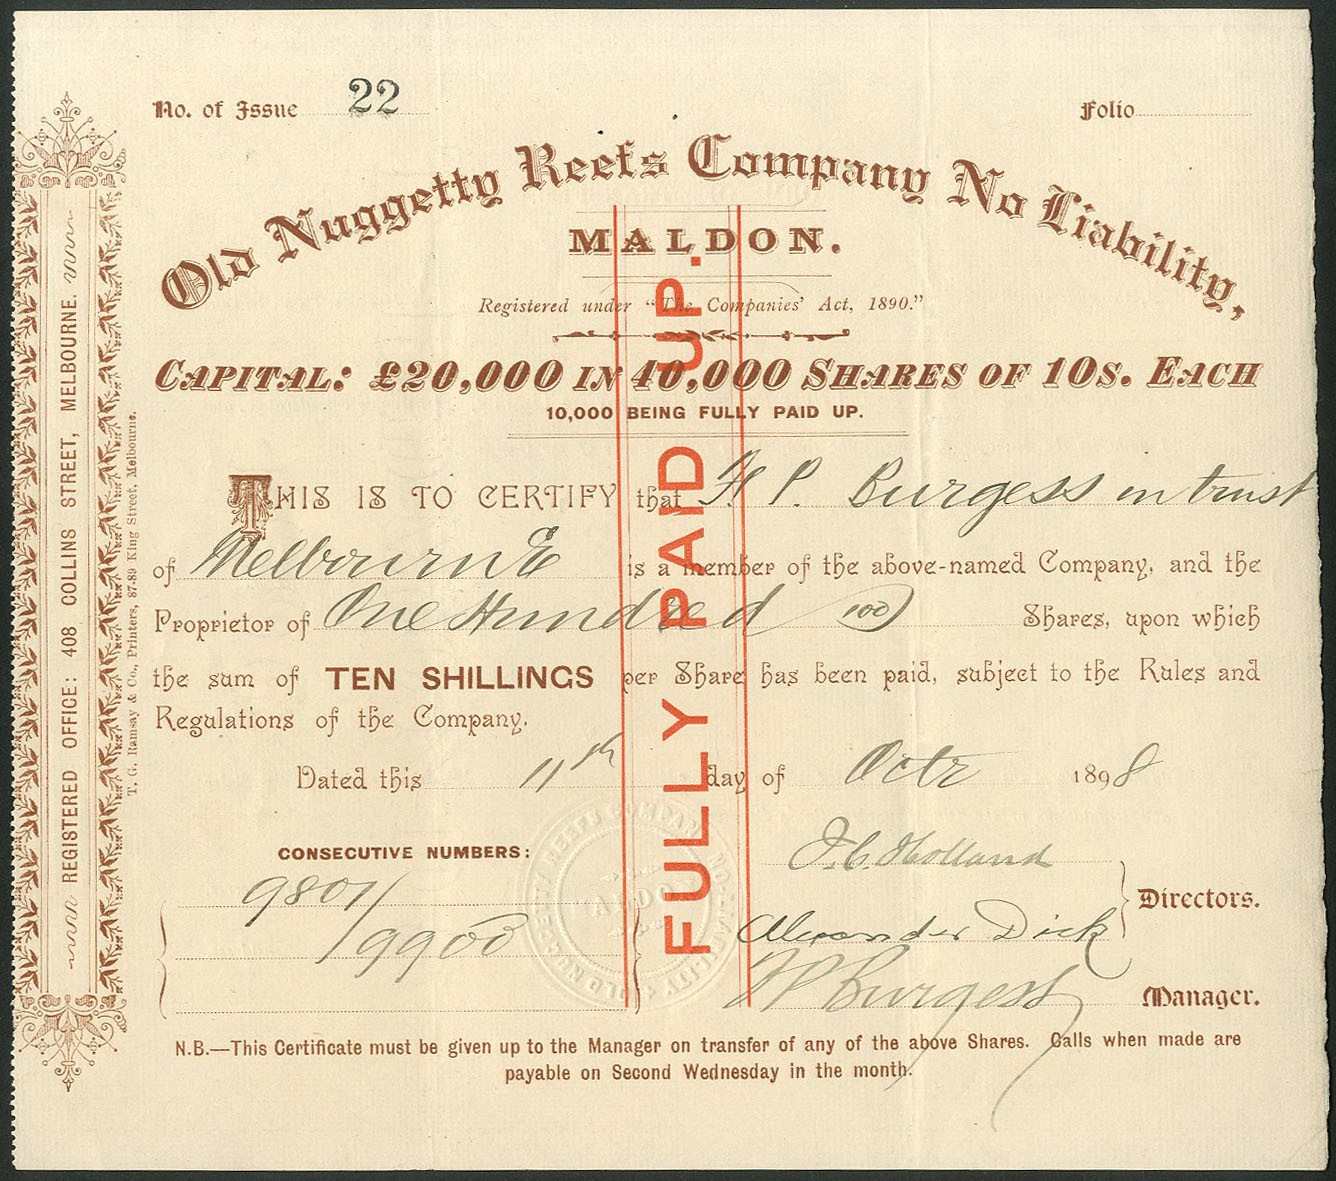 No. of Issue 22
Folio
Old Nuggetty Reefs Company No Liability,
MALDON.
Registered under "The Companies' Act, 1890."
CAPITAL: £20,000 IN 40,000 SHARES OF 10S. EACH
10,000 BEING FULLY PAID UP.
THIS IS TO CERTIFY that H P. Burgess in trust
of Melbourne is a member of the above-named Company, and the
Proprietor of One Hundred (100) Shares, upon which
the sum of TEN SHILLINGS per Share has been paid, subject to the Rules and
Regulations of the Company.
Dated this 11th day of Octr 1898
CONSECUTIVE NUMBERS:
9801/
/9900
J. C. Holland
Alexander Dick
Directors.
Burgess
Manager.
N.B.—This Certificate must be given up to the Manager on transfer of any of the above Shares. Calls when made are
payable on Second Wednesday in the month.
FULLY PAID UP.
REGISTERED OFFICE: 408 COLLINS STREET, MELBOURNE.
T. G. Ramsay & Co., Printers, 87-89 King Street, Melbourne.
OLD NUGGETTY REEFS COMPANY NO-LIABILITY
MALDON